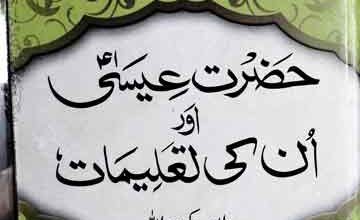 حَضرْت عِیسَیٰؑ
اَور
اُن کی تَعلِیمَات